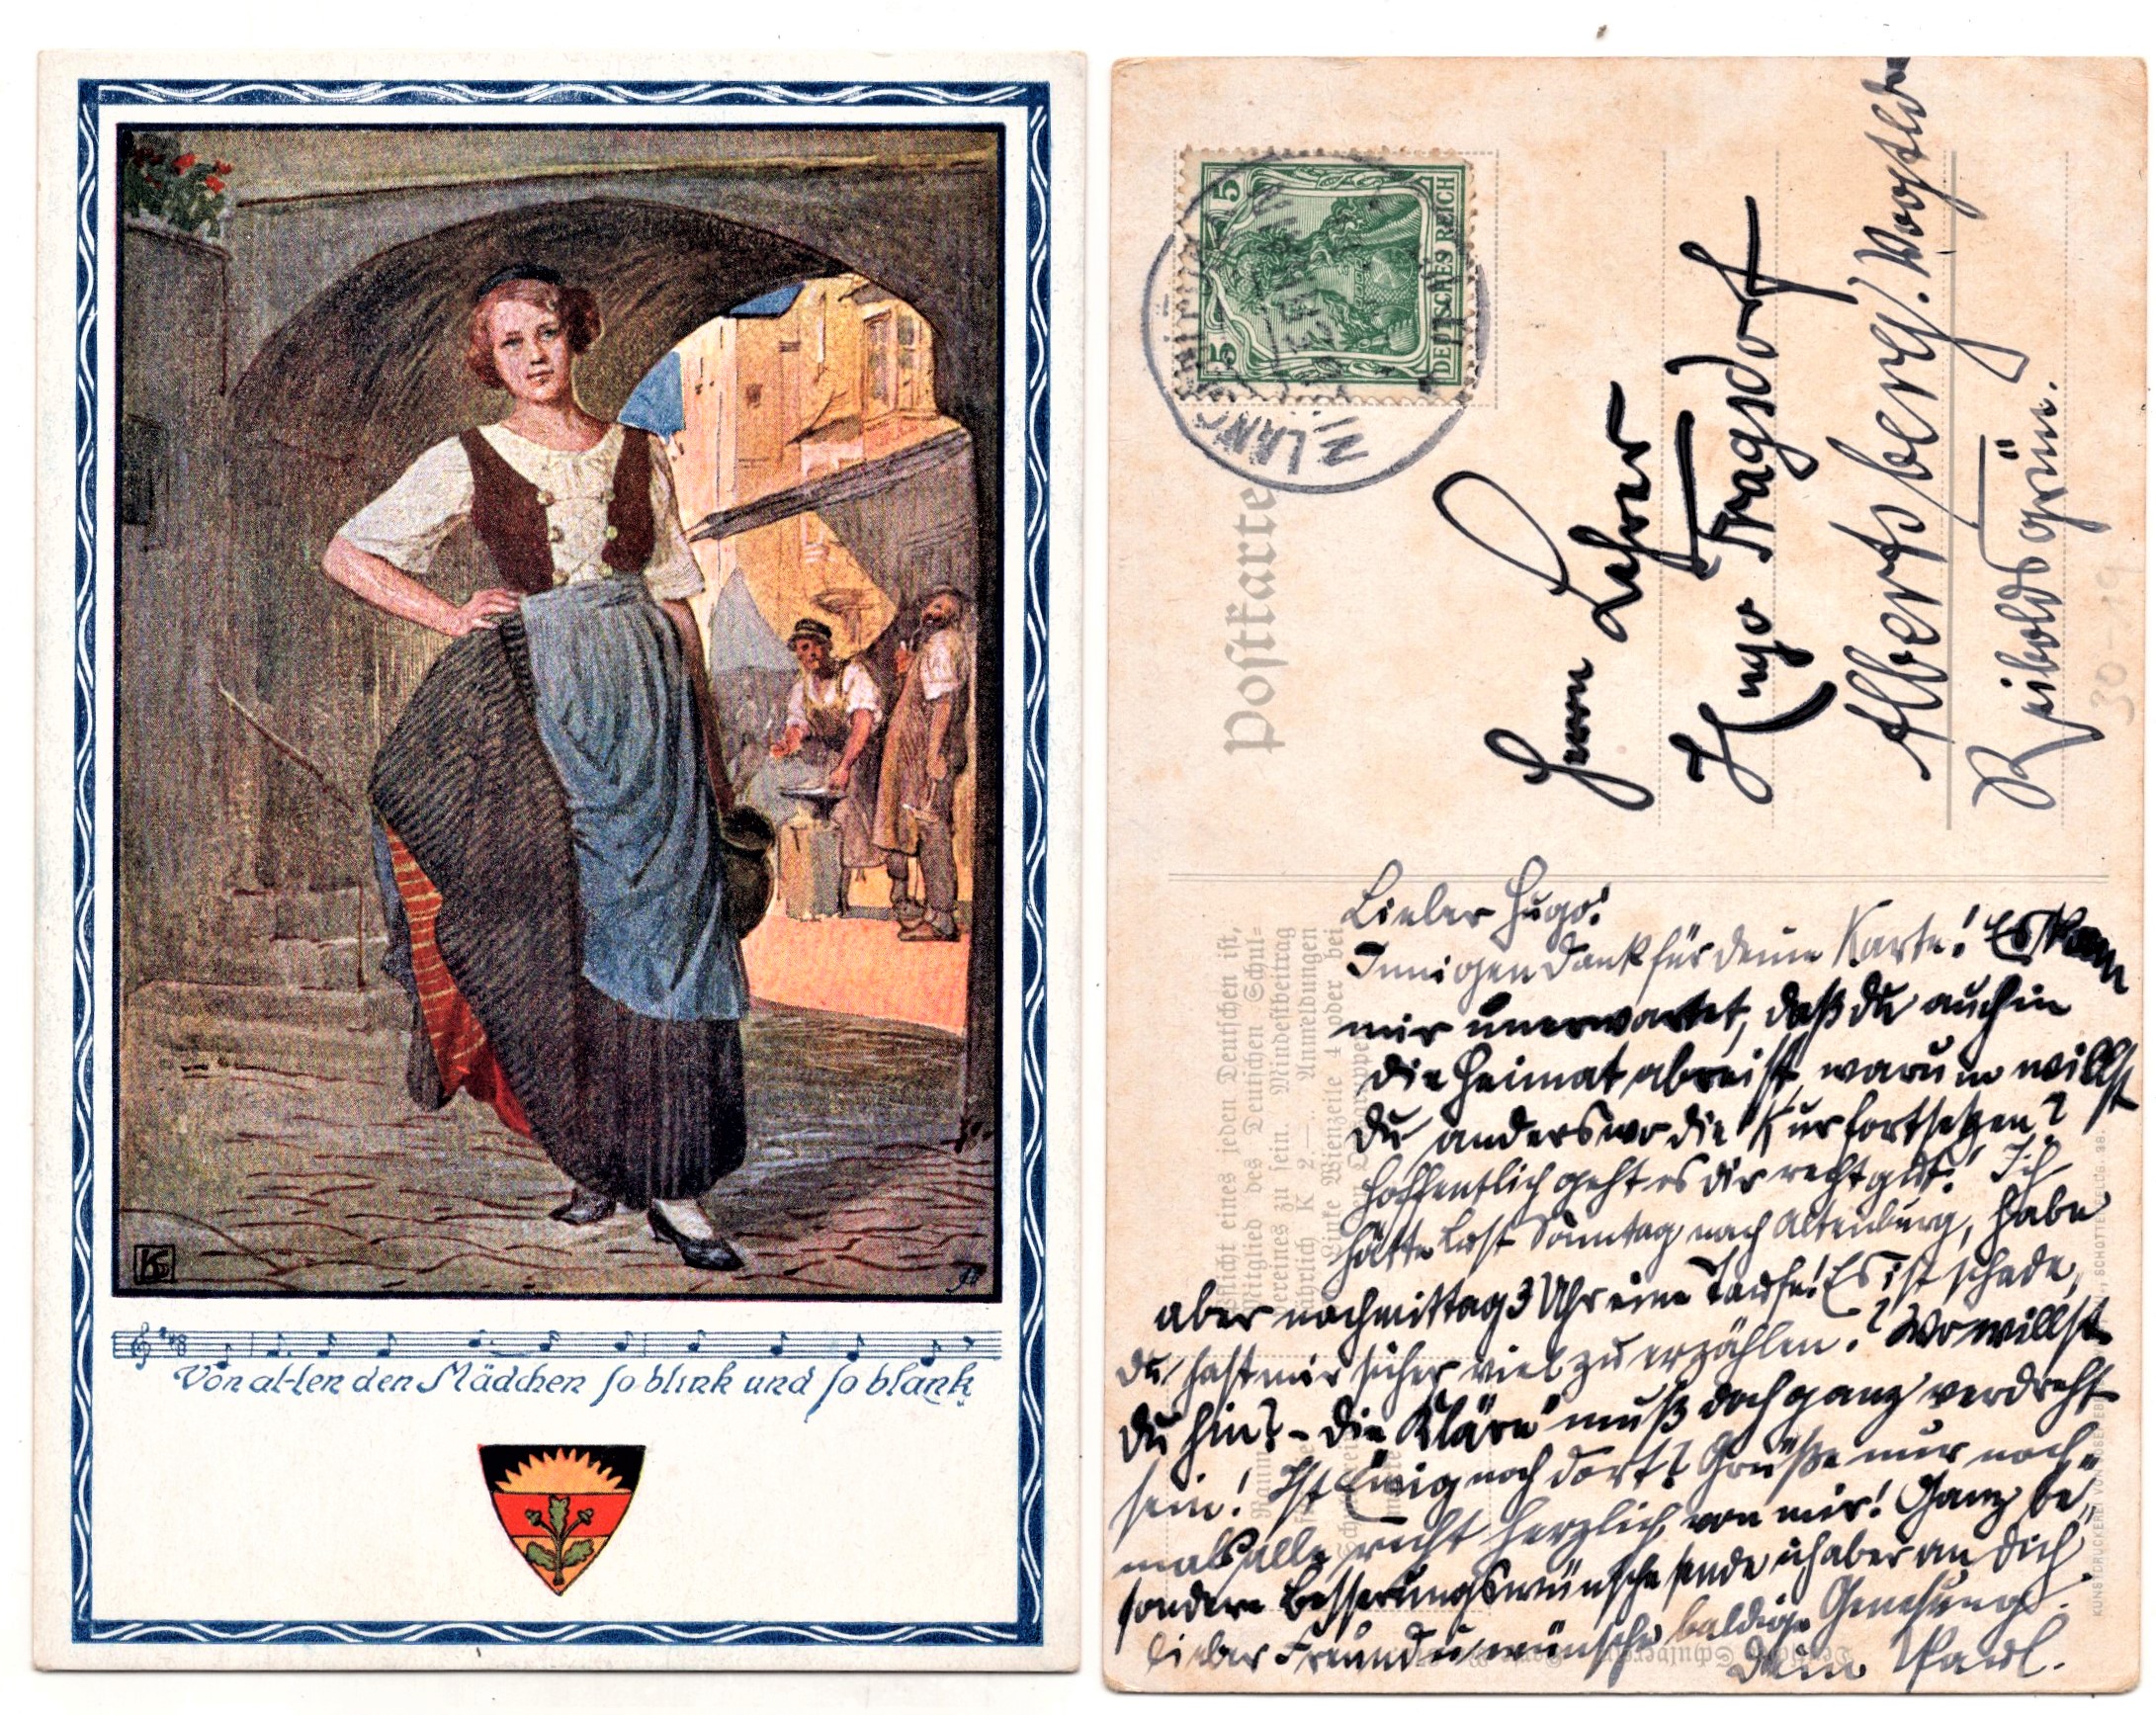 Von al-len den Mädchen so blink und so blank
KG
5
5
DEUTSCHES REICH
Postkarte
Herrn Lehrer
Hugo Tragsdorf
Albertsberg i. Vogtld
Reiboldsgrün.
30-19
Pflicht eines jeden Deutschen ist,
Mitglied des Deutschen Schul-
vereines zu sein. Mindestbeitrag
jährlich K 2.—. Anmeldungen
Linke Wienzeile 4 oder bei
Lieber Hugo!
Innigen Dank für deine Karte! Es kam
mir unerwartet, daß du auch in
die Heimat abreist, warum willst
du anderswo die Kur fortsetzen?
Hoffentlich geht es dir recht gut! Ich
hätte Lust Sonntag nach Altenburg, habe
aber nachmittag 3 Uhr eine Taufe! Es ist schade,
du hast mir sicher viel zu erzählen. Wo willst
du hin? - Die "Kläre" muß doch ganz verdreht
sein! Ist noch dort? Grüße nur noch
mals alle recht herzlich von mir! Ganz be-
sondere Besserungswünsche sende ich aber an dich
lieber Freund u. wünsche baldige Genesung.
Dein Paul.